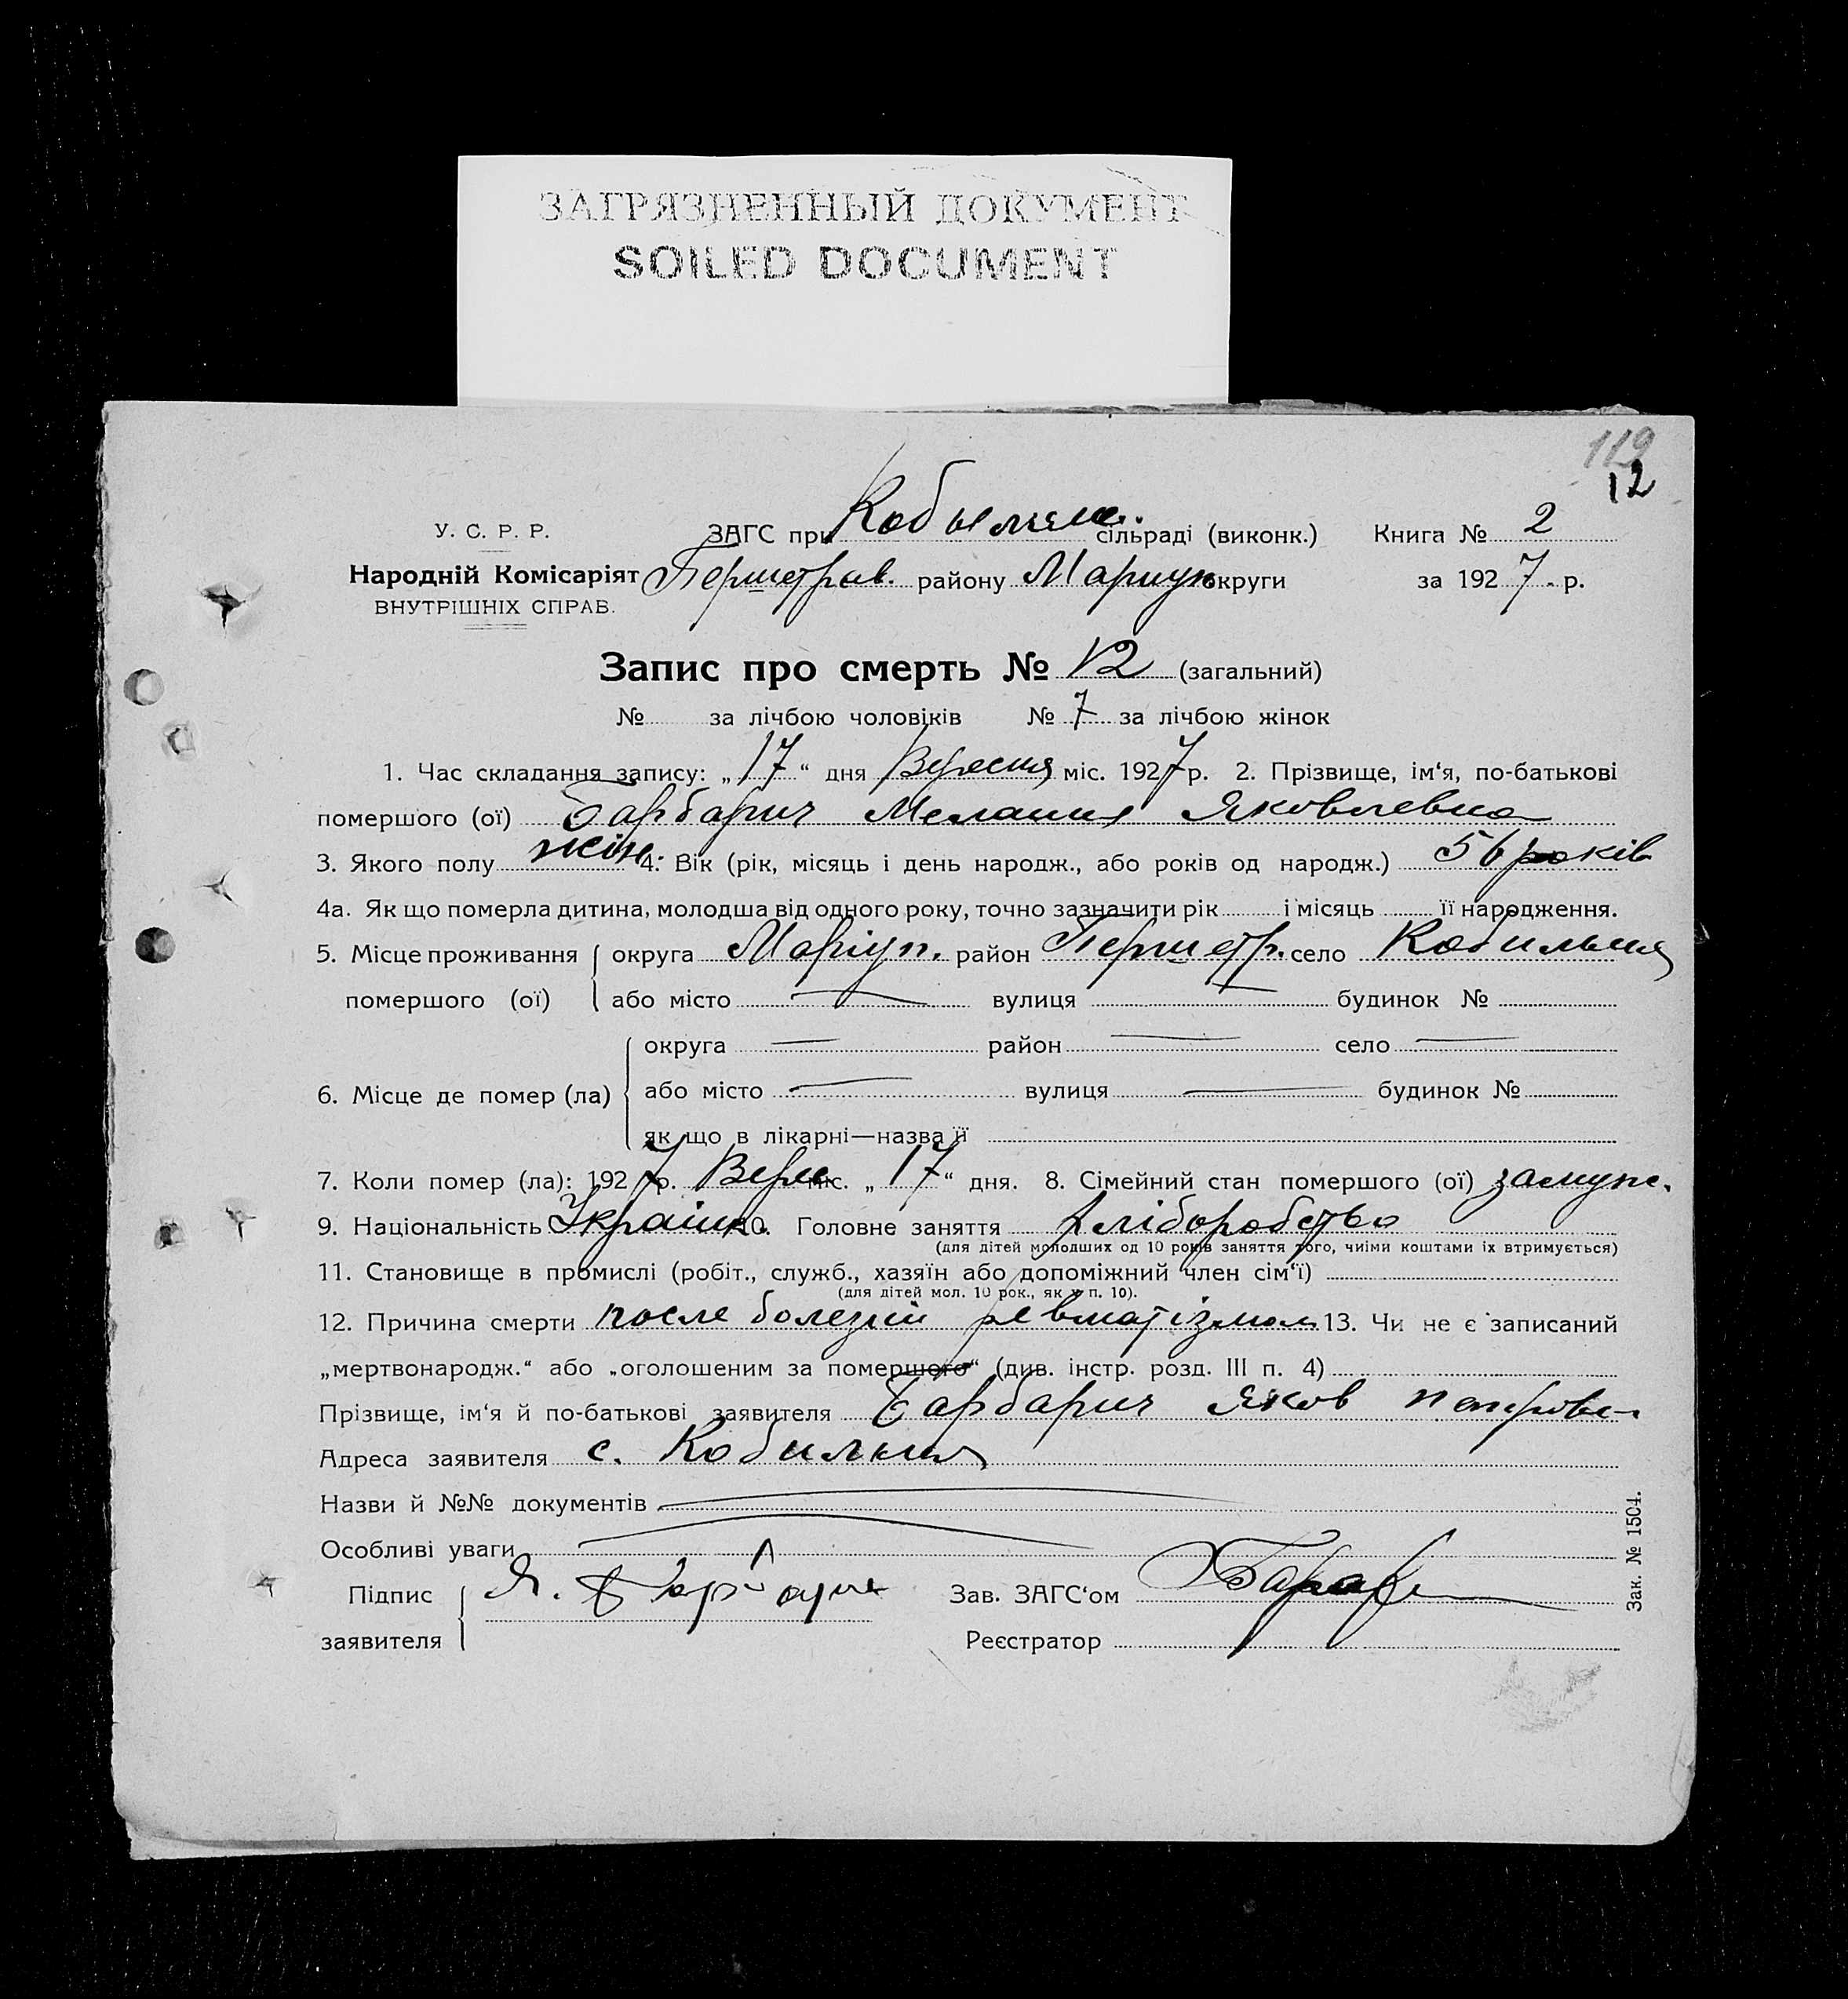 ЗАГРЯЗНЕННЫЙ ДОКУМЕНТ
SOILED DOCUMENT
119
12
У. С. Р. Р. ЗАГС при сільраді (виконк.) Книга № 2
Народній Комісаріят Першотрав. району Мариуп округи за 1927 р.
ВНУТРІШНІХ СПРАВ.
Запис про смерть № 12 (загальний)
№ за лічбою чоловіків № 7 за лічбою жінок
1. Час складання запису: „17“ дня Вересня міс. 1927 р. 2. Прізвище, ім‘я, по-батькові
помершого (ої) Барбарич Мелания Яковлевна
3. Якого полу жін. 4. Вік (рік, місяць і день народж., або років од народж.) 56 років
4а. Як що померла дитина, молодша від одного року, точно зазначити рік і місяць її народження.
5. Місце проживання округа Маріуп. район Першотр. село Кобильня
помершого (ої) або місто — вулиця — будинок №
округа — район — село —
6. Місце де помер (ла) або місто — вулиця — будинок №
як що в лікарні—назва її
7. Коли помер (ла): 1927 р. Вере міс. „17“ дня. 8. Сімейний стан помершого (ої) замуж.
9. Національність Україн. 10. Головне заняття хліборобство
(для дітей молодших од 10 років заняття того, чиіми коштами іх втримується)
11. Становище в промислі (робіт., служб., хазяїн або допоміжний член сім‘ї)
(для дітей мол. 10 рок., як у п. 10).
12. Причина смерти после болезни ревматізмом 13. Чи не є записаний
„мертвонародж.“ або „оголошеним за помершого“ (див. інстр. розд. III п. 4)
Прізвище, ім‘я й по-батькові заявителя Барбарич Яков Петрови
Адреса заявителя с. Кобильня
Назви й №№ документів —
Особливі уваги —
Підпис Я. Барбарич Зав. ЗАГС‘ом
заявителя Реєстратор
Зак. № 1504.